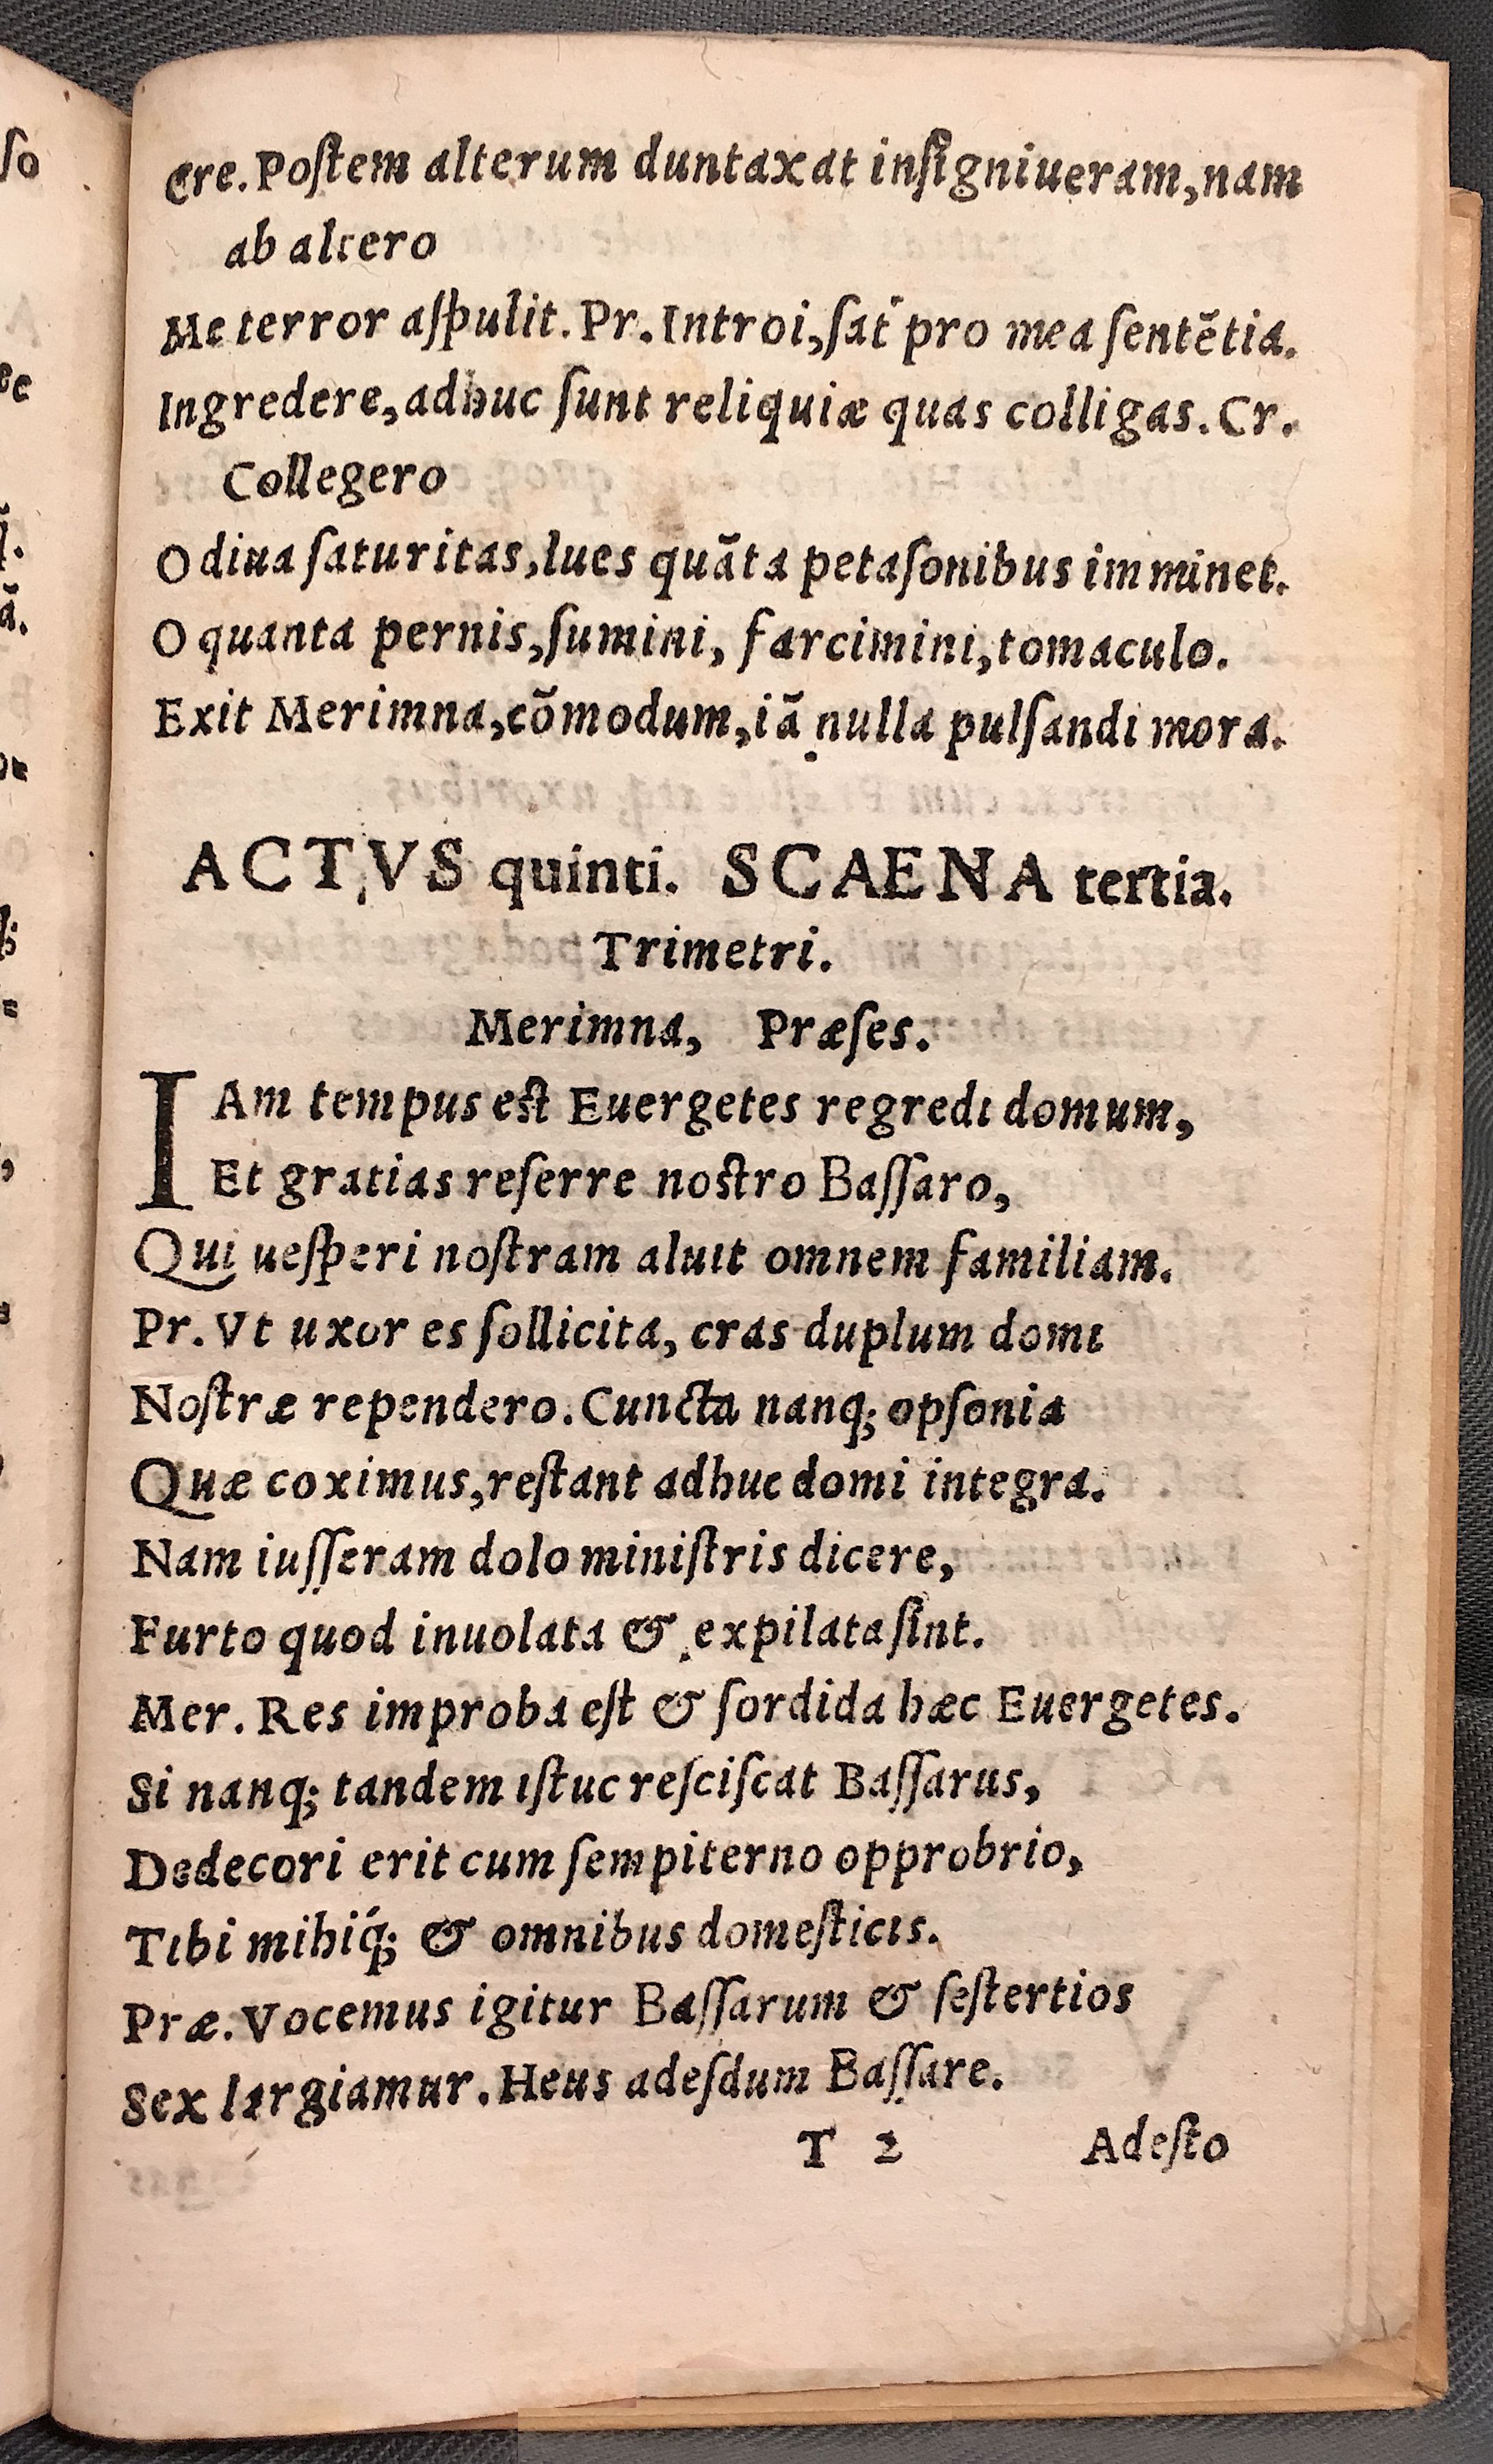 Cre. Poſtem alterum duntaxat inſigniueram, nam
ab altero
Me terror aſpulit. Pr. Introi, ſat pro mea ſentẽtia.
Ingredere, adhuc ſunt reliquiæ quas colligas. Cr.
Collegero
O diua ſaturitas, lues quãta petaſonibus imminet.
O quanta pernis, ſumini, farcimini, tomaculo.
Exit Merimna, cõmodum, iã nulla pulſandi mora.
ACTVS quinti. SCAENA tertia.
Trimetri.
Merimna, Præſes.
IAm tempus eſt Euergetes regredi domum,
Et gratias referre noſtro Baſſaro,
Qui ueſperi noſtram aluit omnem familiam.
Pr. Vt uxor es ſollicita, cras duplum domi
Noſtræ rependero. Cuncta nanq; opſonia
Quæ coximus, reſtant adhuc domi integra.
Nam iuſſeram dolo miniſtris dicere,
Furto quod inuolata & expilata ſint.
Mer. Res improba eſt & ſordida hæc Euergetes.
Si nanq; tandem iſtuc reſciſcat Baſſarus,
Dedecori erit cum ſempiterno opprobrio,
Tibi mihiq́; & omnibus domeſticis.
Præ. Vocemus igitur Baſſarum & ſeſtertios
Sex largiamur. Heus adeſdum Baſſare.
T 2 Adeſto